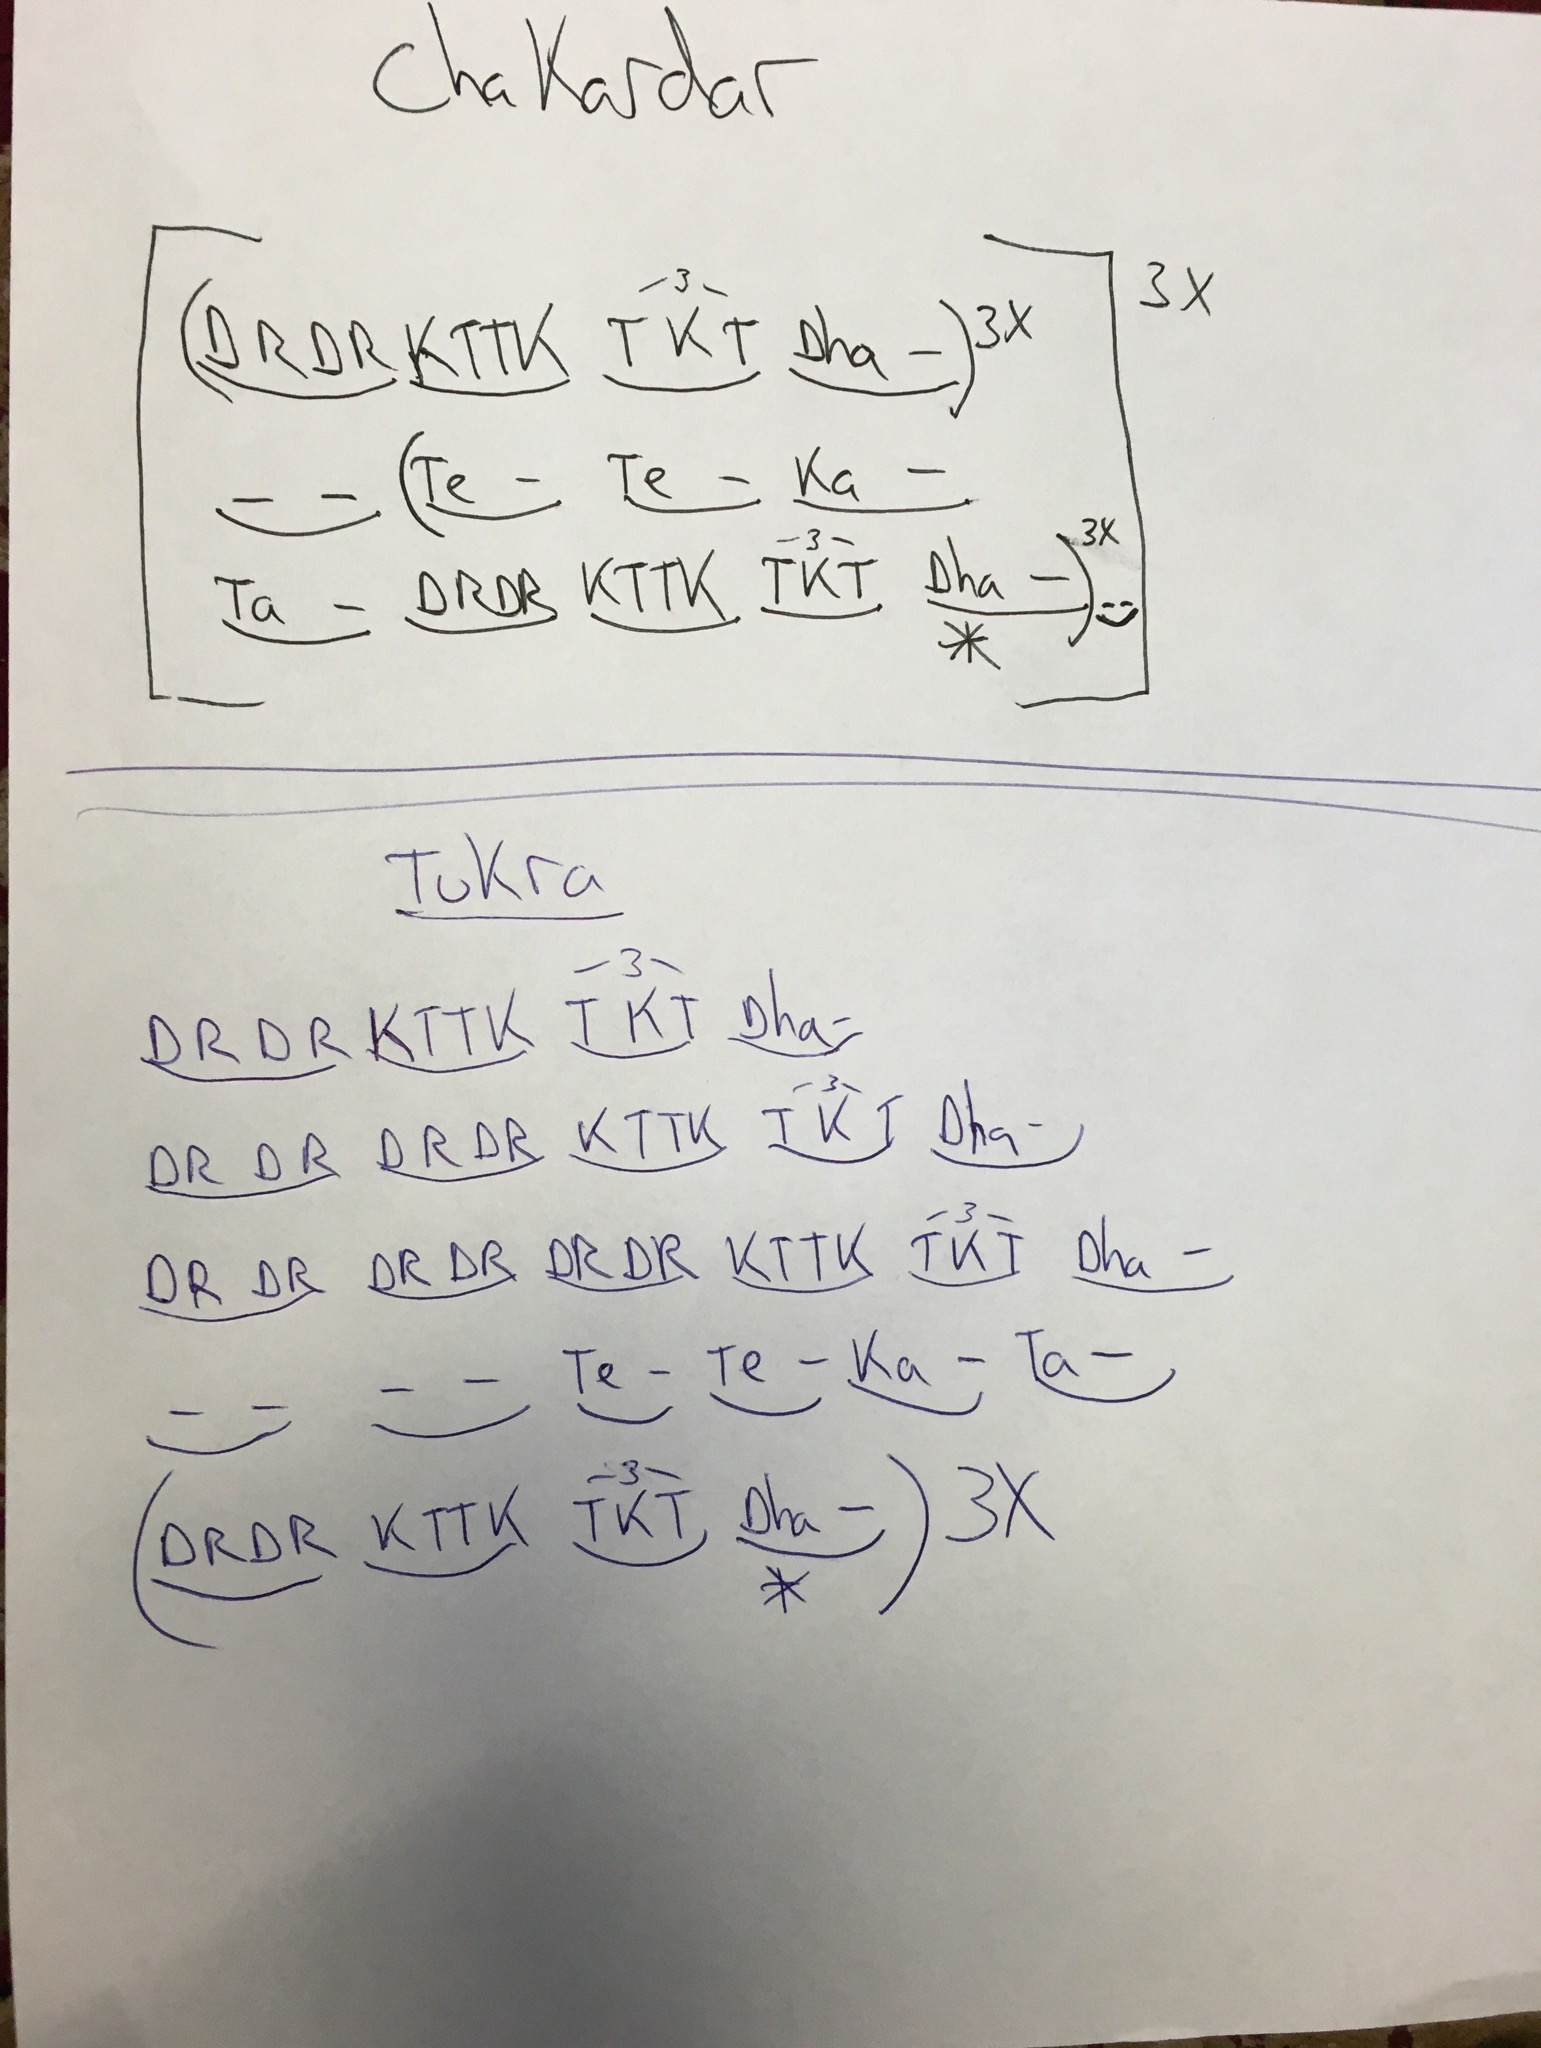 ChaKardar
[(DRDR KTTK -3- TKT Dha -)3X
- - (Te - Te - Ka -
Ta - DRDR KTTK -3- TKT Dha -)3X - -] 3X
*
TuKra
DRDR KTTK -3- TKT Dha-
DR DR DRDR KTTK -3- TKT Dha-
DR DR DR DR DRDR KTTK -3- TKT Dha -
- - - - Te - Te - Ka - Ta -
(DRDR KTTK -3- TKT Dha -) 3X
*